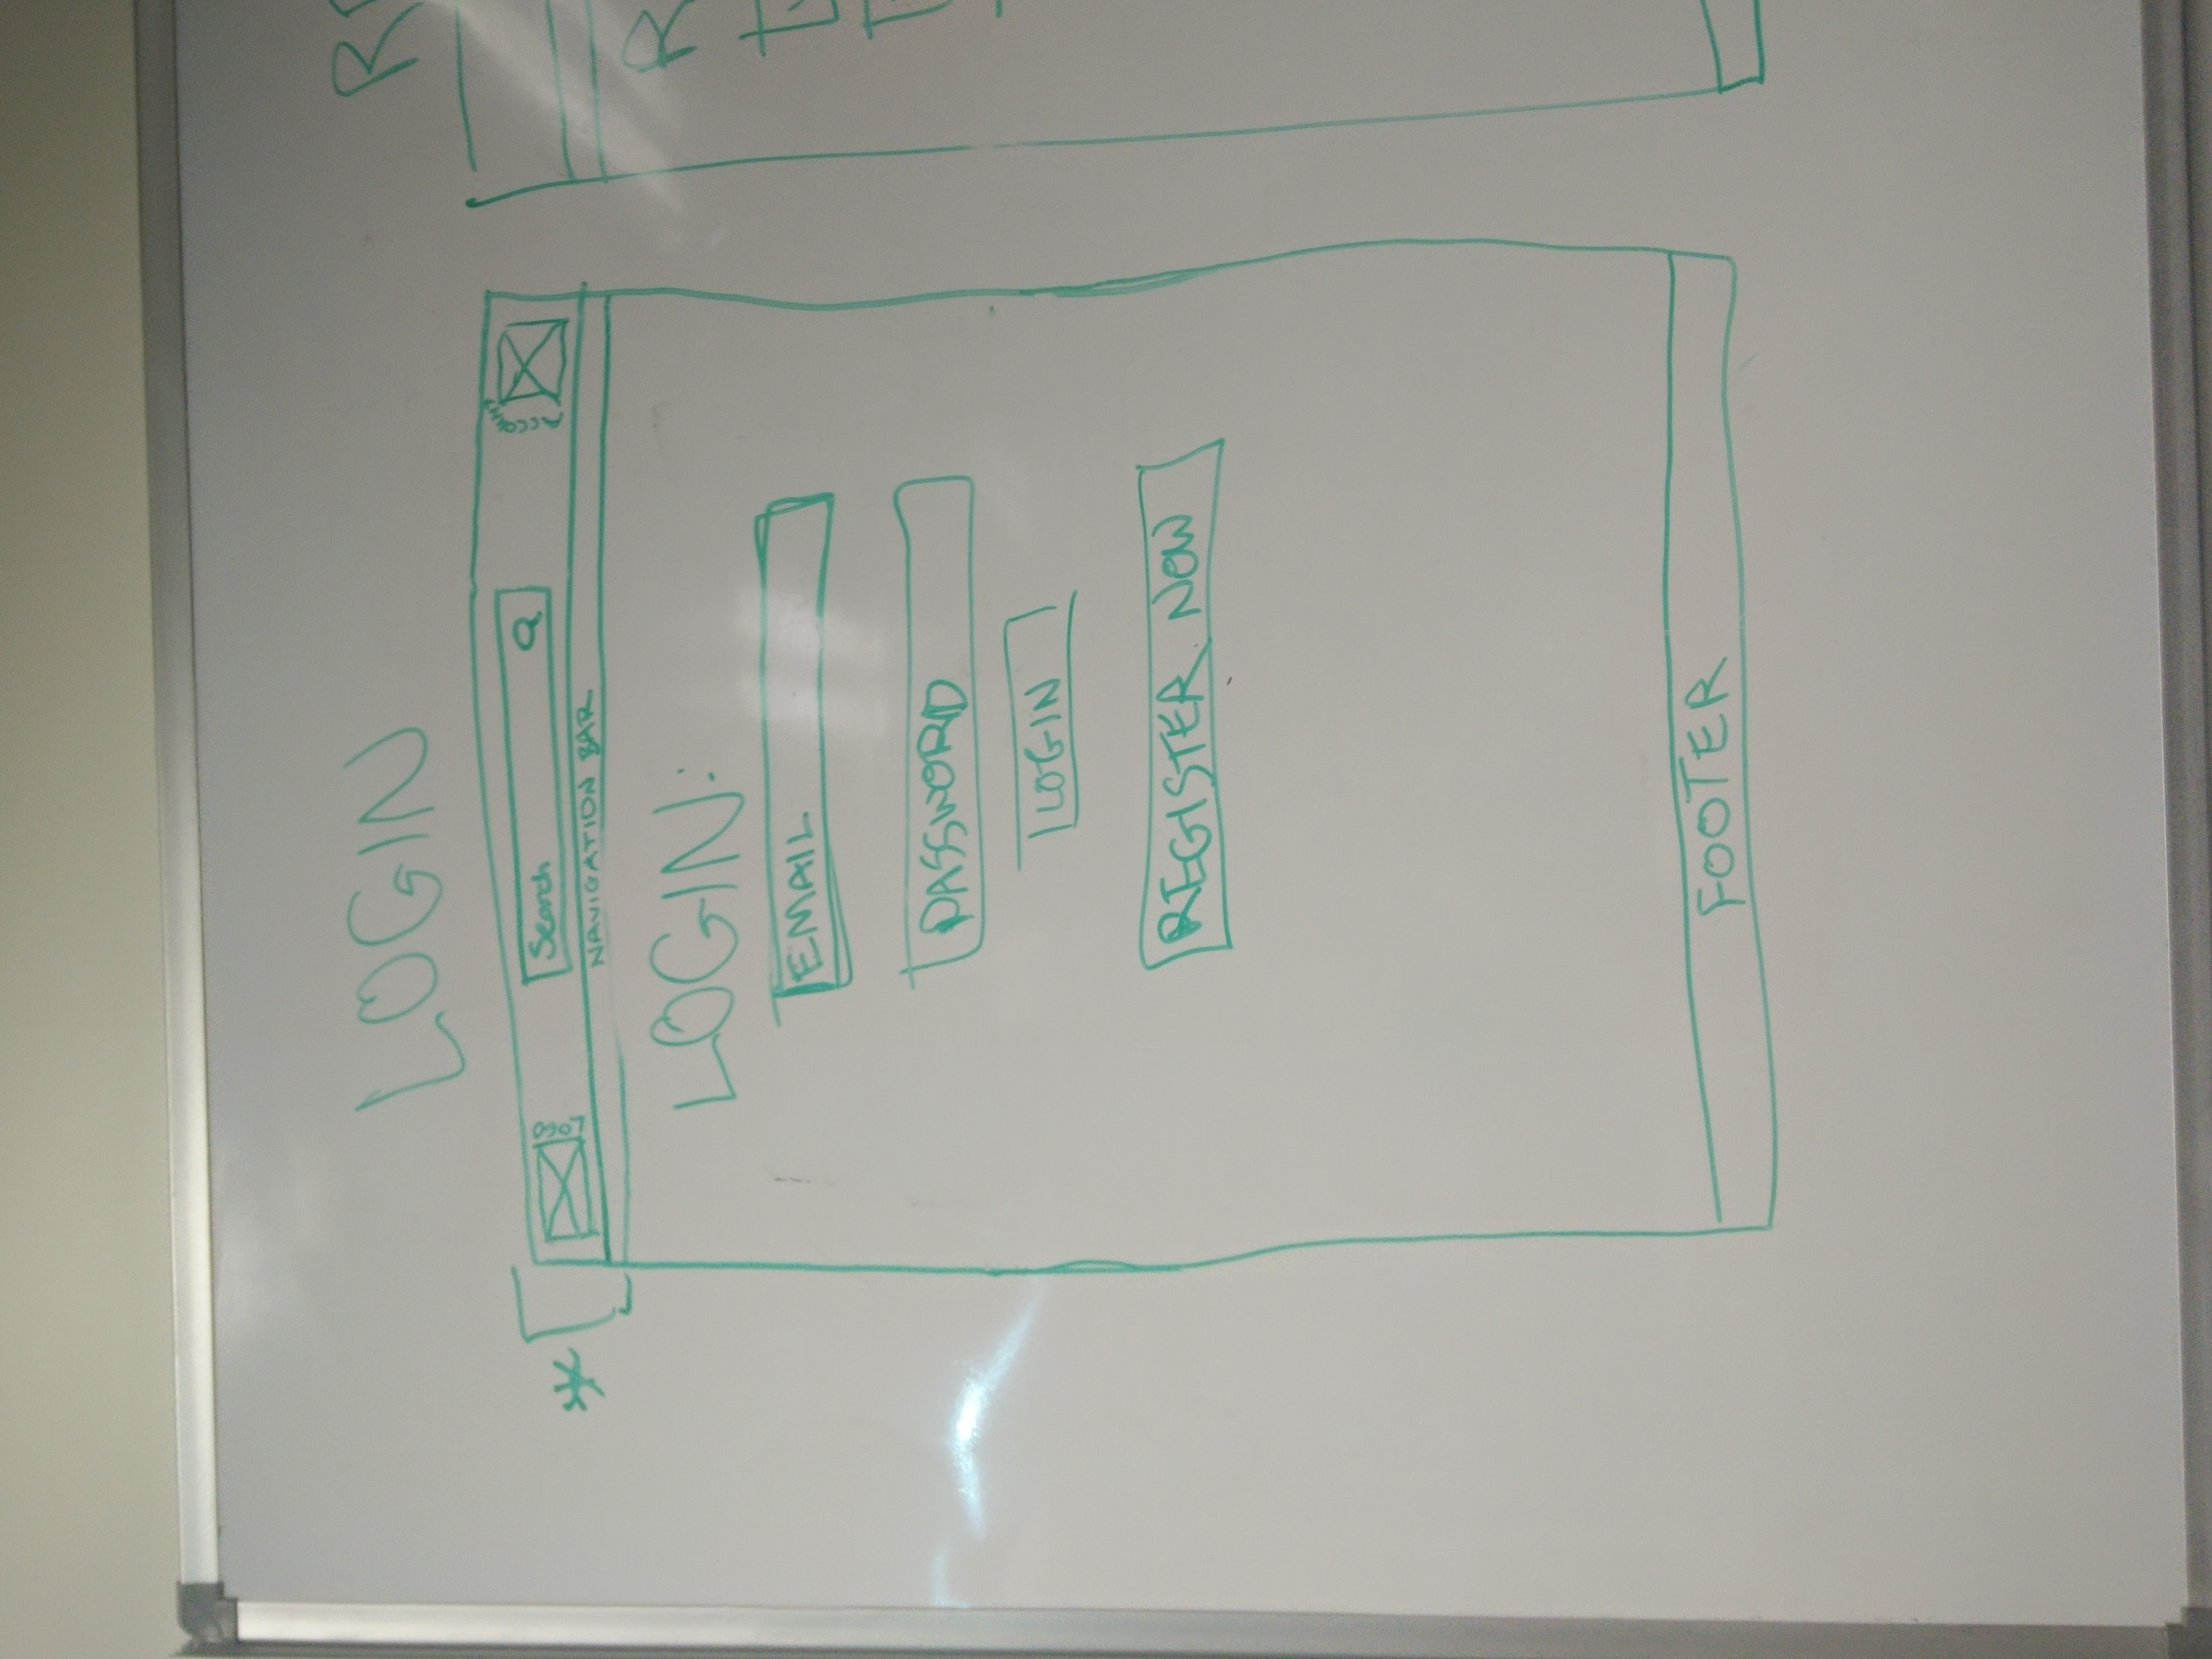 LOGIN
LOGO
Search
ACCOUNT
NAVIGATION BAR
LOGIN:
EMAIL
PASSWORD
LOGIN
REGISTER NOW
FOOTER